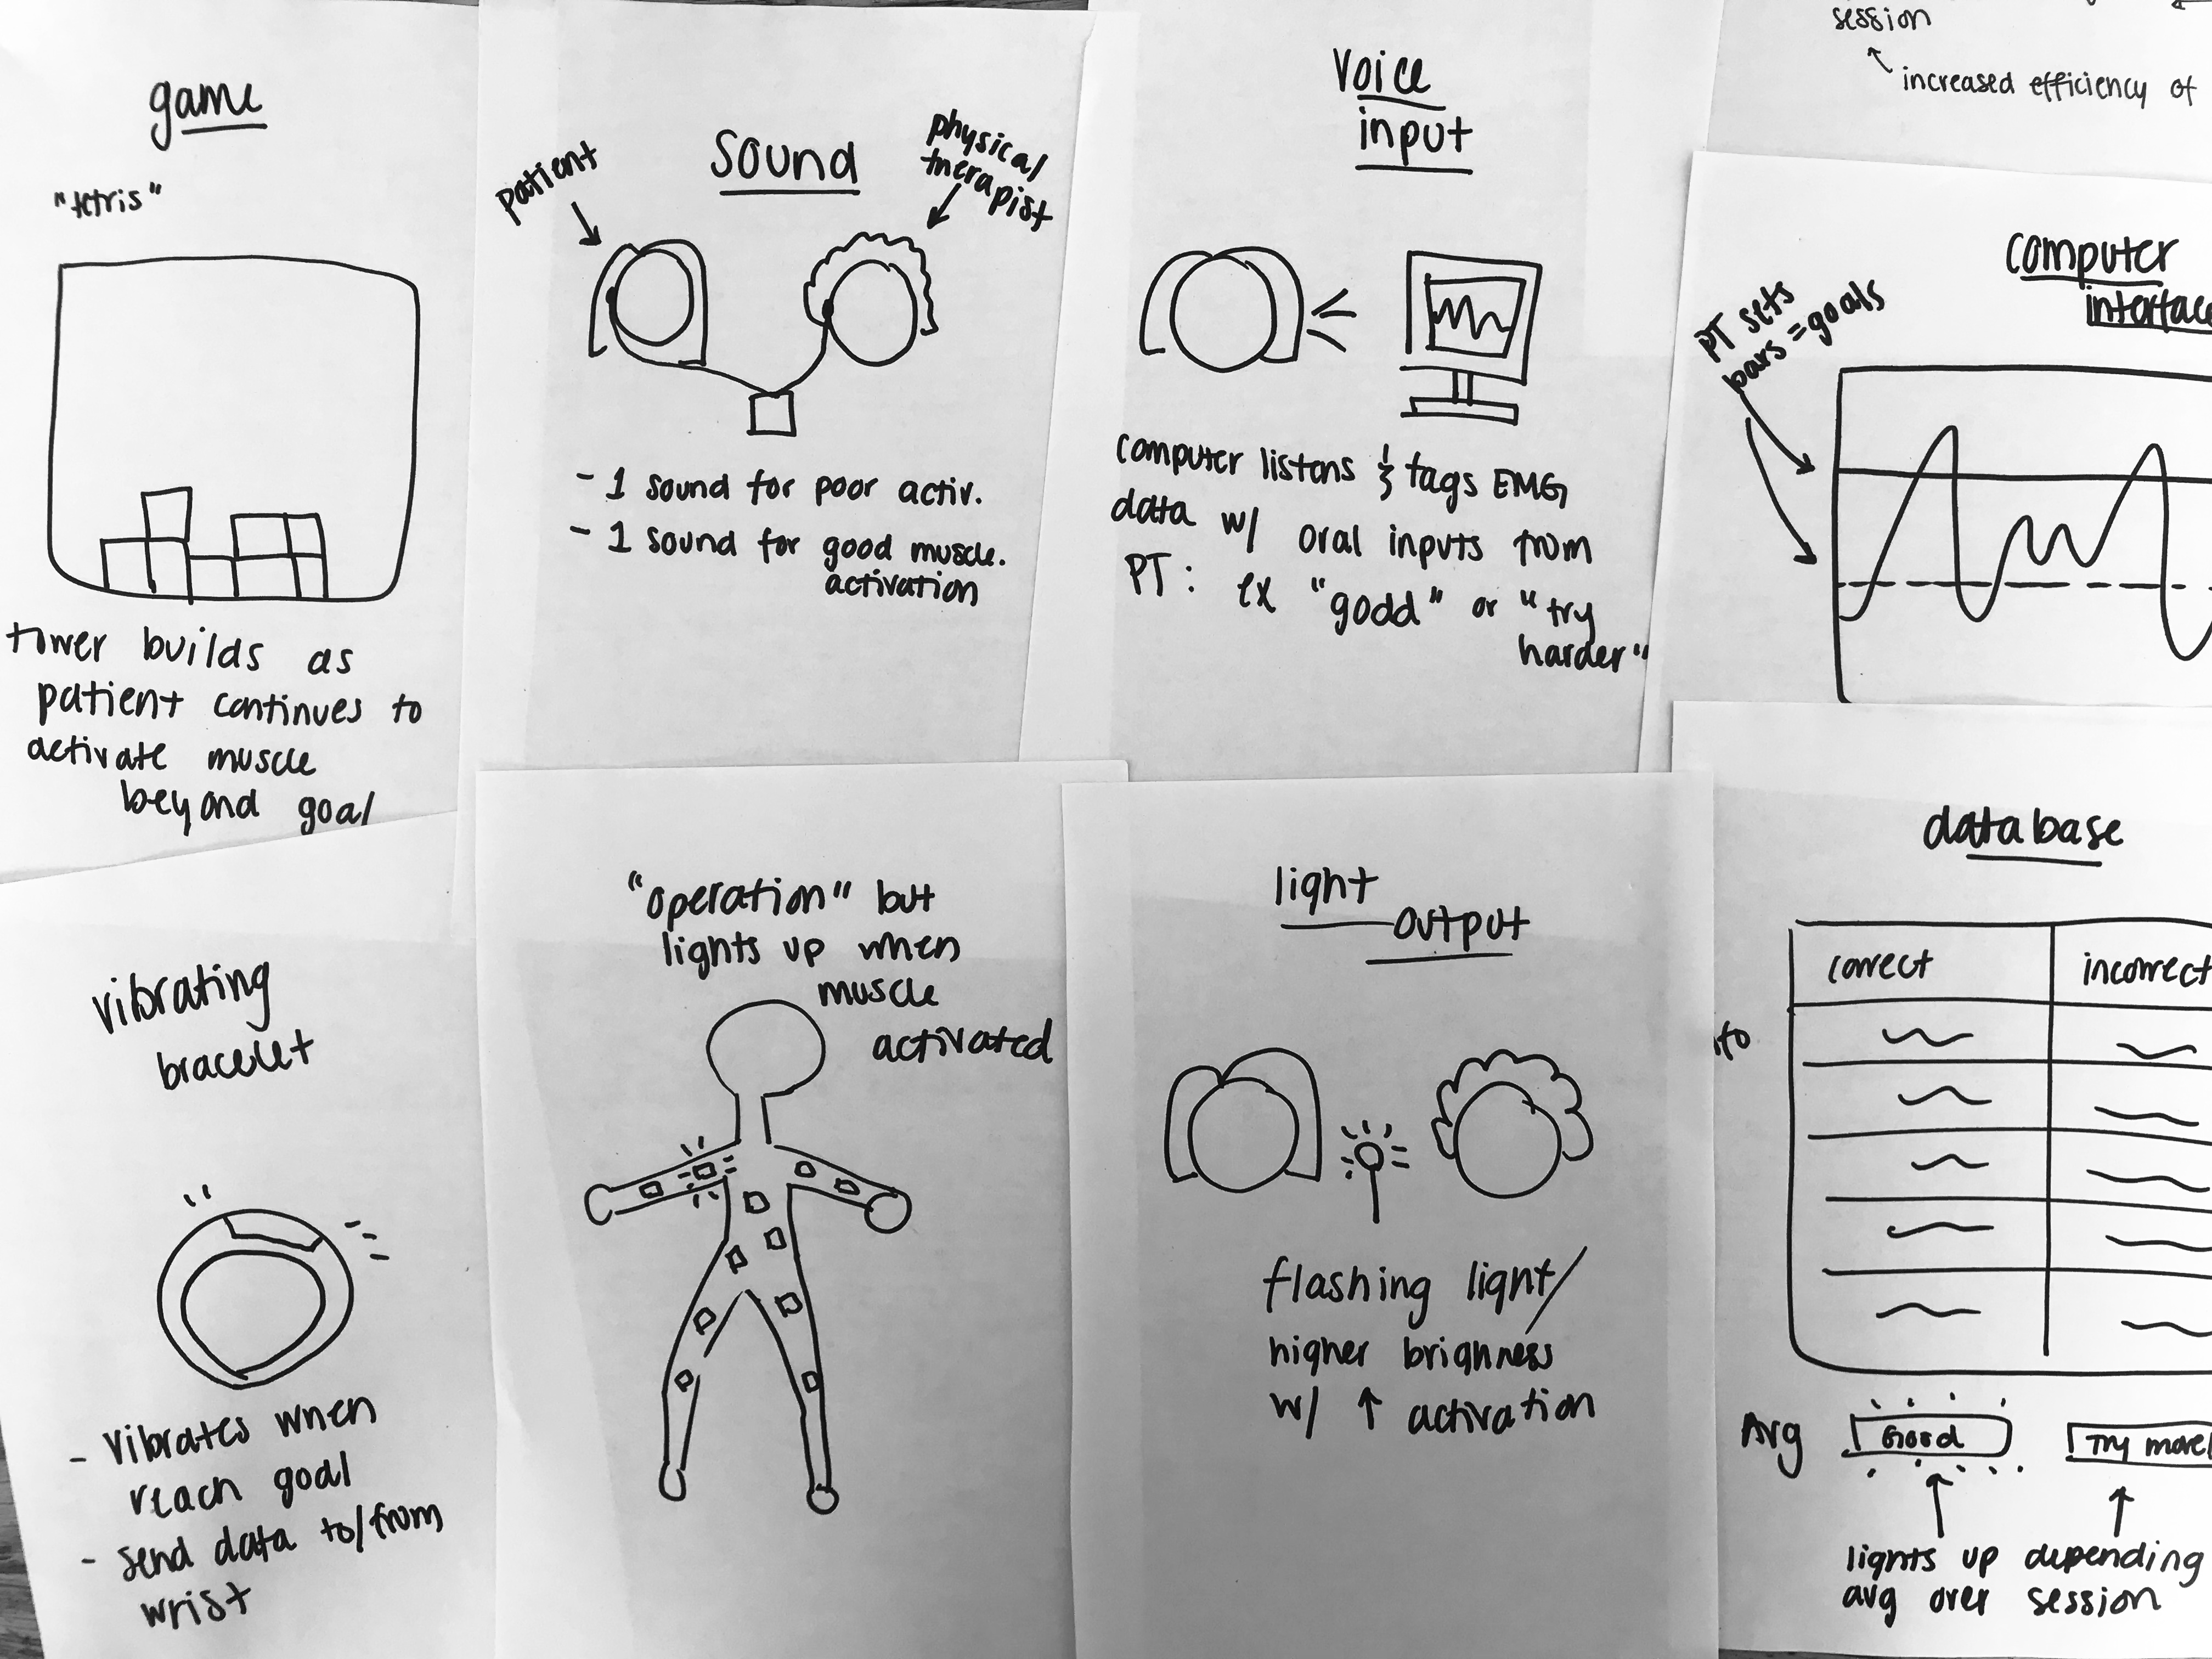 game
"tetris"
tower builds as
patient continues to
activate muscle
beyond goal
Sound
patient
physical
therapist
- 1 sound for poor activ.
- 1 sound for good muscle.
activation
Voice
input
computer listens & tags EMG
data w/ oral inputs from
PT: ex "godd" or "try
harder"
session
increased efficiency of
computer
interface
PT sets
bars = goals
vibrating
bracelet
- vibrates when
reach goal
- send data to/from
wrist
"operation" but
lights up when
muscle
activated
light
output
flashing light/
higher brighness
w/ ↑ activation
database
correct incorrect
Avg Good Try more!
lights up depending
avg over session